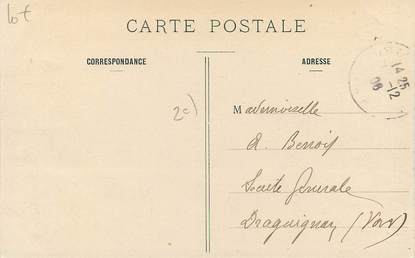 lot
CARTE POSTALE
CORRESPONDANCE
ADRESSE
14 25
-12
06
2c)
Mademoiselle
A. Benoit
Societe Generale
Draguignan (Var)